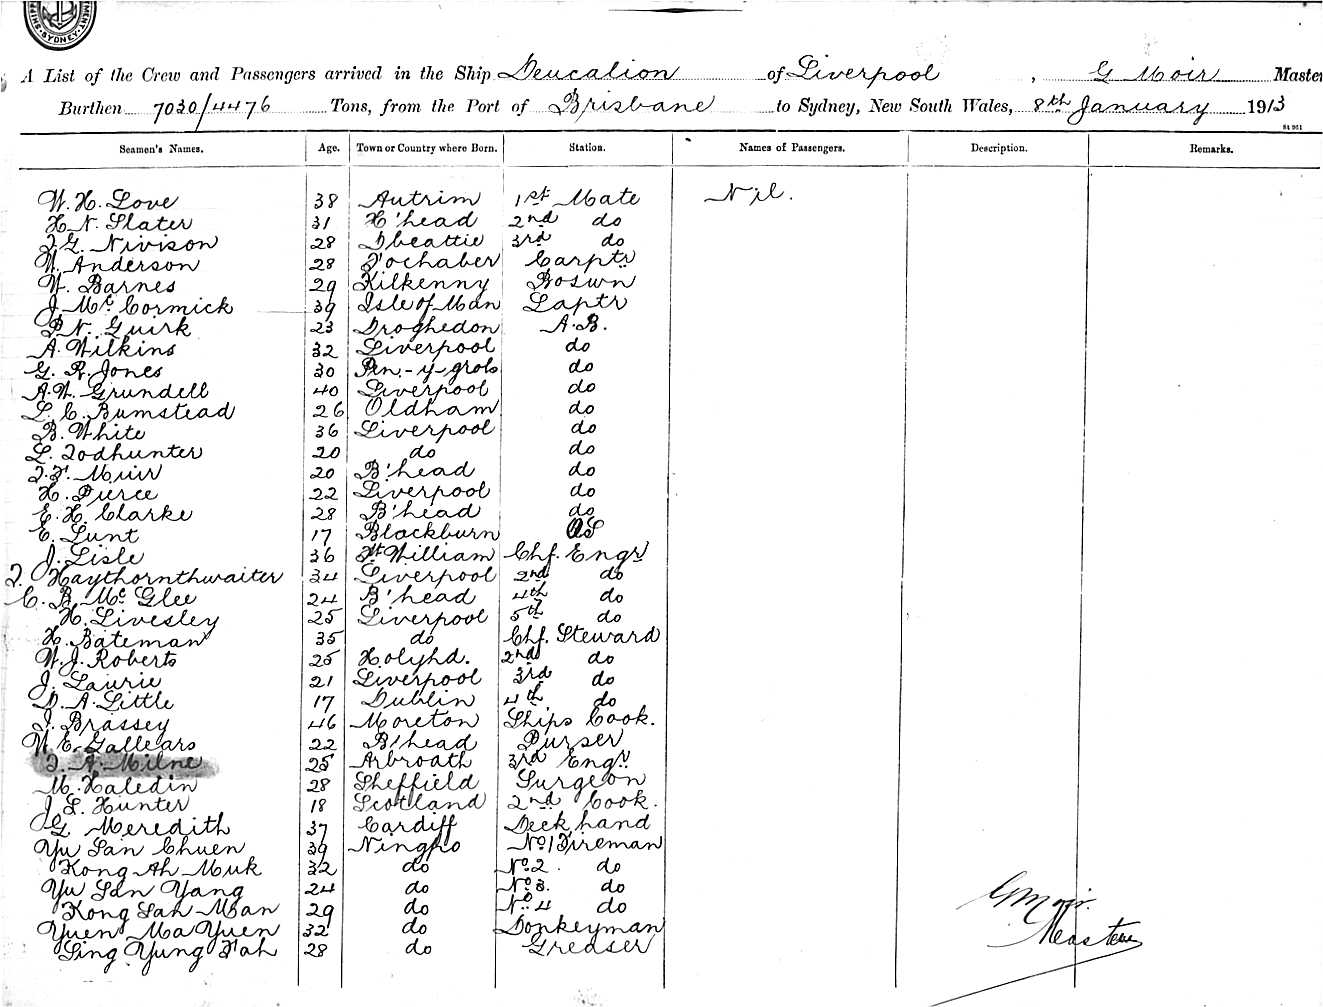 SYDNEY
A List of the Crew and Passengers arrived in the Ship Deucalion of Liverpool, G Moir Master
Burthen 7030/4476 Tons, from the Port of Brisbane to Sydney, New South Wales, 8th January 1913
St 961
Seamen's Names. Age. Town or Country where Born. Station. Names of Passengers. Description. Remarks.
W. H. Love 38 Autrim 1st Mate Nil.
H. N. Slater 31 H'head 2nd do
J. G. Nivison 28 Dbeattie 3rd do
W. Anderson 28 Fochaber Carptr
W. Barnes 29 Kilkenny Boswn
J. McCormick 39 Isle of Man Laptr
P. N. Guirk 23 Droghedon A.B.
A. Wilkins 32 Liverpool do
G. R. Jones 30 Pen-y-grob do
A. W. Grundell 40 Liverpool do
L. C. Bumstead 26 Oldham do
B. White 36 Liverpool do
L. Todhunter 20 do do
J. F. Muir 20 B'head do
H. Pierce 22 Liverpool do
E. H. Clarke 28 B'head do
E. Lunt 17 Blackburn OS
J. Lisle 36 Ft William Chf. Engr
T. Haythornthwaiter 34 Liverpool 2nd do
C. B. McGlee 24 B'head 4th do
H. Livesley 25 Liverpool 5th do
H. Bateman 35 do Chf. Steward
W. J. Roberts 25 Holyhd. 2nd do
J. Laurie 21 Liverpool 3rd do
D. A. Little 17 Dublin 4th do
J. Brassey 46 Moreton Ships Cook.
W. E. Gallears 22 B'head Purser
J. A. Milne 25 Arbroath 3rd Engr.
M. Haledin 28 Sheffield Surgeon
J. L. Hunter 18 Scotland 2nd Cook.
G. Meredith 37 Cardiff Deck hand
Yu San Chuen 39 Ningpo No 1 Fireman
Kong Ah Muk 32 do No 2. do
Yu San Yang 24 do No 3. do
Kong Sah Man 29 do No 4 do
Yuen Ma Yuen 32 do Donkeyman
Sing Yung Fah 28 do Greaser
G Moir.
Master